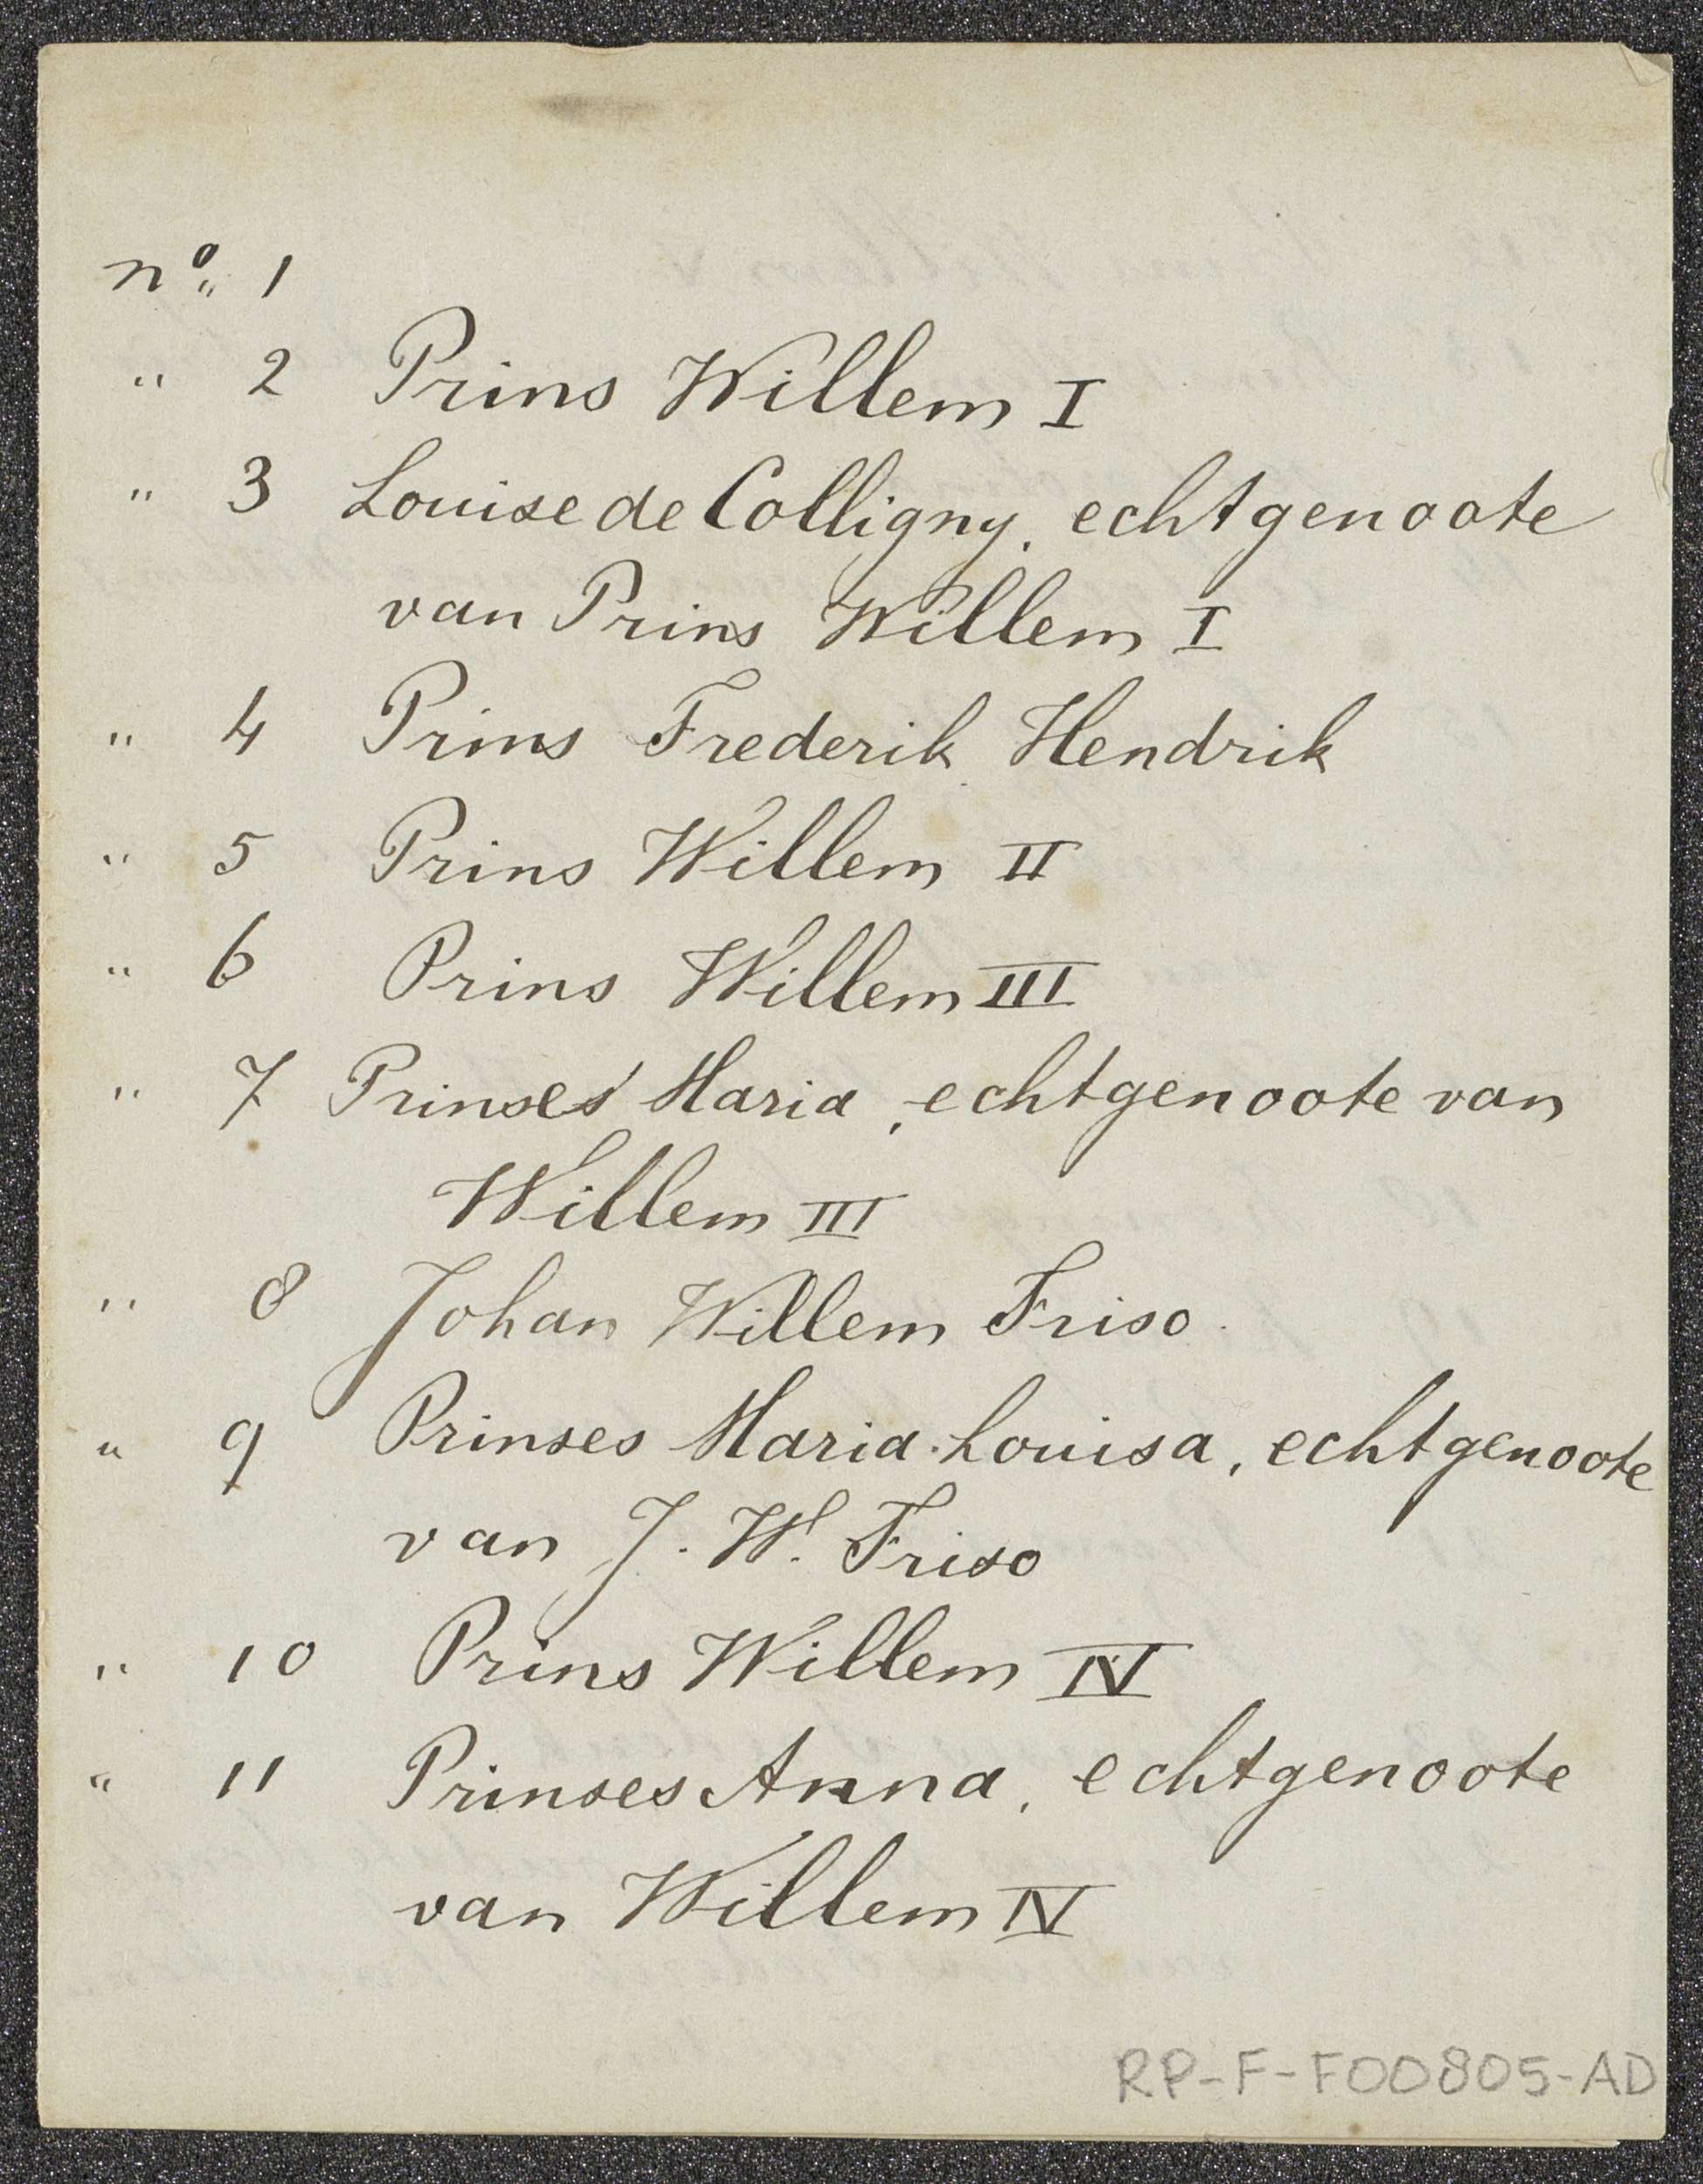 nº 1
" 2 Prins Willem I
" 3 Louise de Colligny, echtgenoote
van Prins Willem I
" 4 Prins Frederik Hendrik
" 5 Prins Willem II
" 6 Prins Willem III
" 7 Prinses Maria, echtgenoote van
Willem III
" 8 Johan Willem Friso.
" 9 Prinses Maria Louisa, echtgenoote
van J. W. Friso
" 10 Prins Willem IV
" 11 Prinses Anna, echtgenoote
van Willem IV
RP-F-F00805-AD